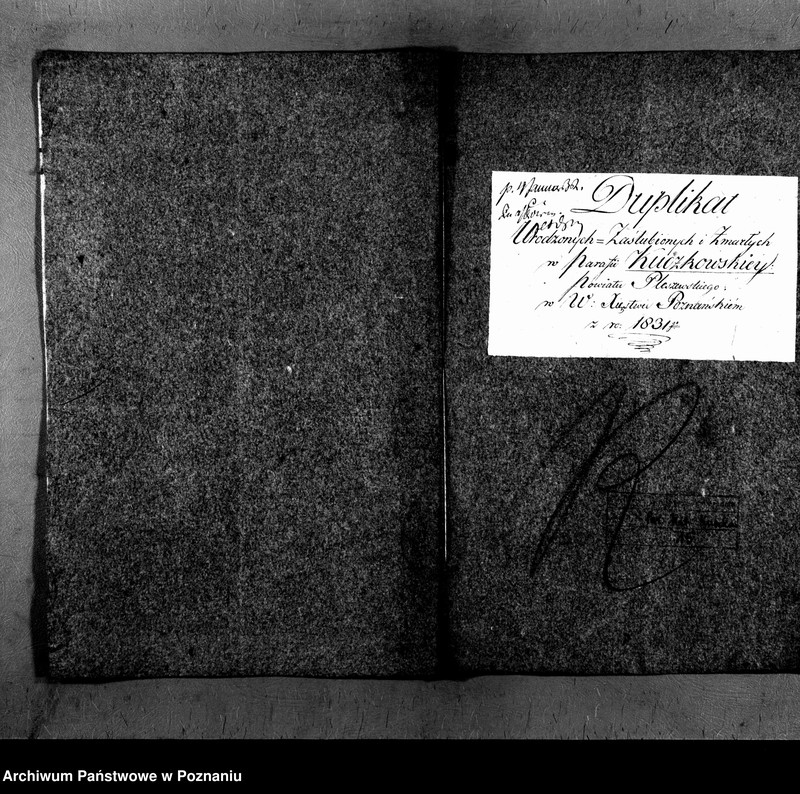 Duplikat
Urodzonych = Zaslubionych i Zmarłych
w Parafii Kuczkowskiey.
Powiatu Pleszewskiego.
w W: Xięstwie Poznańskiém
z r. 1831
Archiwum Państwowe w Poznaniu